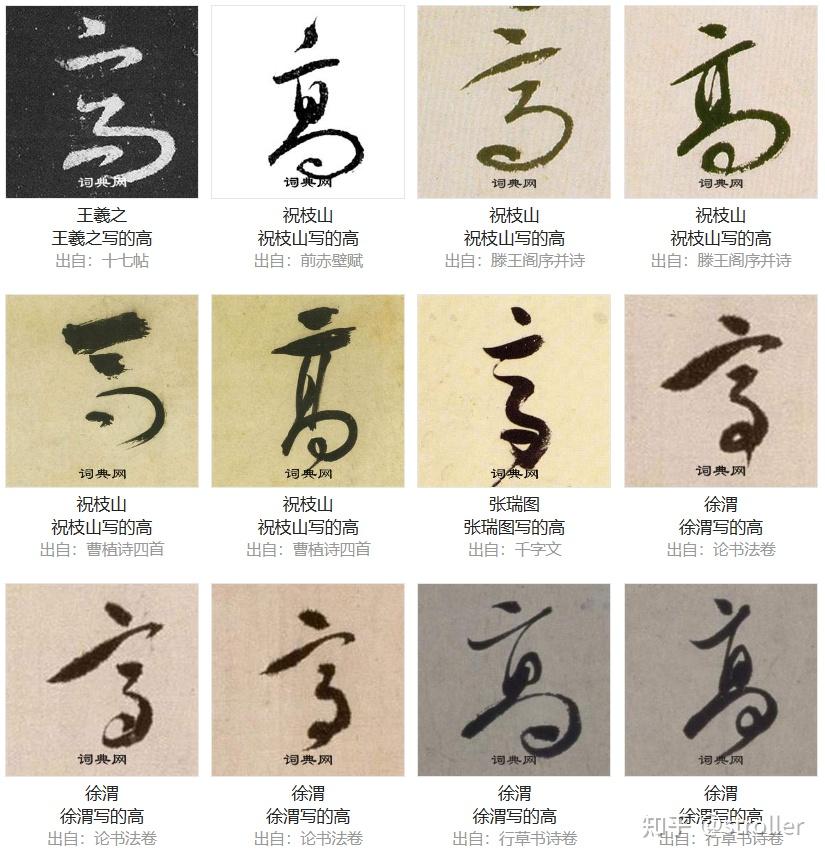 高 高 高 高
词典网 词典网 词典网 词典网
王羲之 祝枝山 祝枝山 祝枝山
王羲之写的高 祝枝山写的高 祝枝山写的高 祝枝山写的高
出自：十七帖 出自：前赤壁赋 出自：滕王阁序并诗 出自：滕王阁序并诗
高 高 高 高
词典网 词典网 词典网 词典网
祝枝山 祝枝山 张瑞图 徐渭
祝枝山写的高 祝枝山写的高 张瑞图写的高 徐渭写的高
出自：曹植诗四首 出自：曹植诗四首 出自：千字文 出自：论书法卷
高 高 高 高
词典网 词典网 词典网 词典网
徐渭 徐渭 徐渭 徐渭
徐渭写的高 徐渭写的高 徐渭写的高 徐渭写的高
出自：论书法卷 出自：论书法卷 出自：行草书诗卷 出自：行草书诗卷
知乎 @stroller